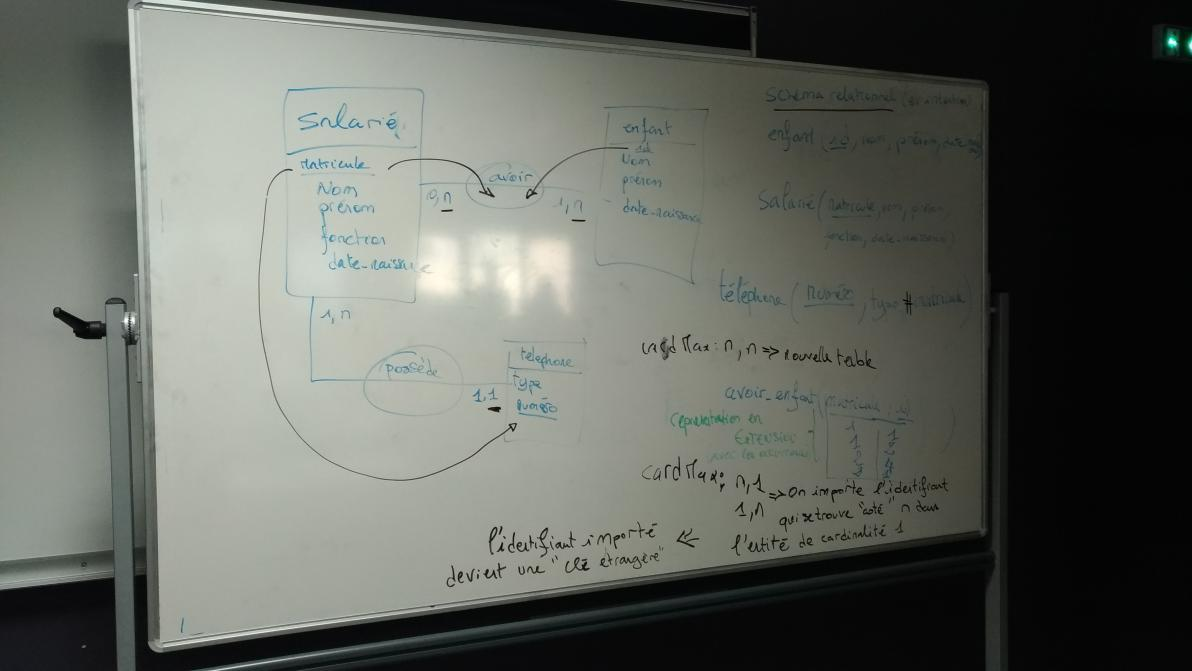 Salarié
Matricule
Nom
prénom
fonction
date_naissance
0,n
avoir
1,n
enfant
id
Nom
prénom
date_naissance
1,n
possède
1,1
telephone
type
numéro
Schéma relationnel (en intention)
enfant (id, nom, prénom, date
Salarié (matricule, nom, prénom,
fonction, date_naissance)
téléphone (numéro, type, #matricule)
cardMax: n, n => nouvelle table
avoir_enfant (matricule, id)
représentation en
EXTENSION
cardMax: n,1
1,n
=> On importe l'identifiant
qui se trouve "coté" n dans
l'entité de cardinalité 1
l'identifiant importé
devient une "clé étrangère"